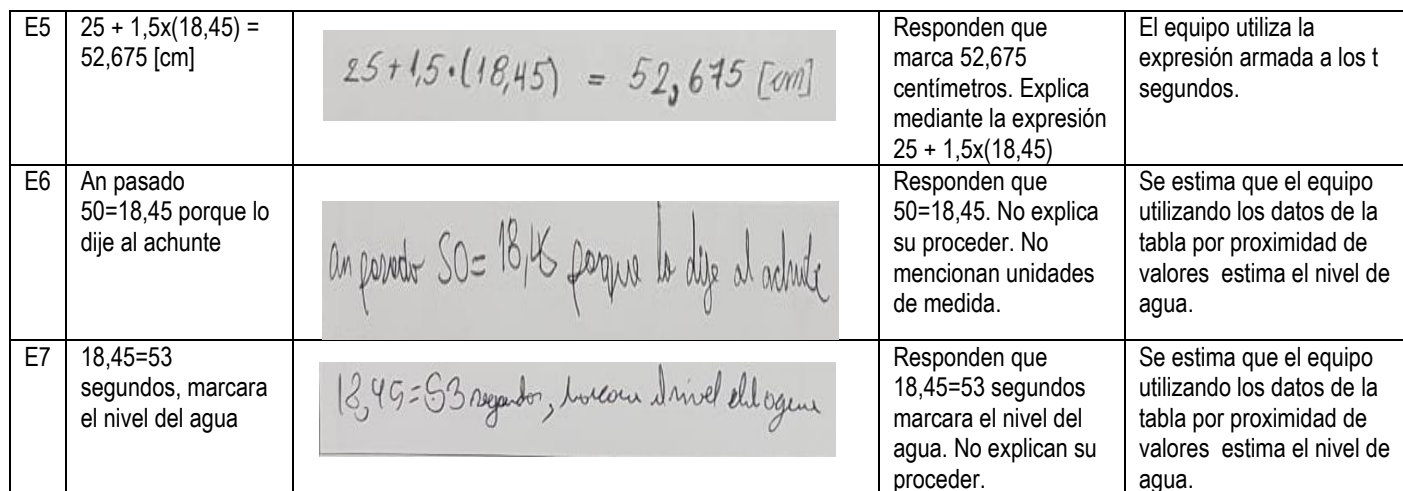 E5
25 + 1,5x(18,45) =
52,675 [cm]
25+1,5·(18,45) = 52,675 [cm]
Responden que
marca 52,675
centímetros. Explica
mediante la expresión
25 + 1,5x(18,45)
El equipo utiliza la
expresión armada a los t
segundos.
E6
An pasado
50=18,45 porque lo
dije al achunte
an pasado 50= 18,45 porque lo dije al achunte
Responden que
50=18,45. No explica
su proceder. No
mencionan unidades
de medida.
Se estima que el equipo
utilizando los datos de la
tabla por proximidad de
valores estima el nivel de
agua.
E7
18,45=53
segundos, marcara
el nivel del agua
18,45=53 segundos, marcara el nivel del agua
Responden que
18,45=53 segundos
marcara el nivel del
agua. No explican su
proceder.
Se estima que el equipo
utilizando los datos de la
tabla por proximidad de
valores estima el nivel de
agua.